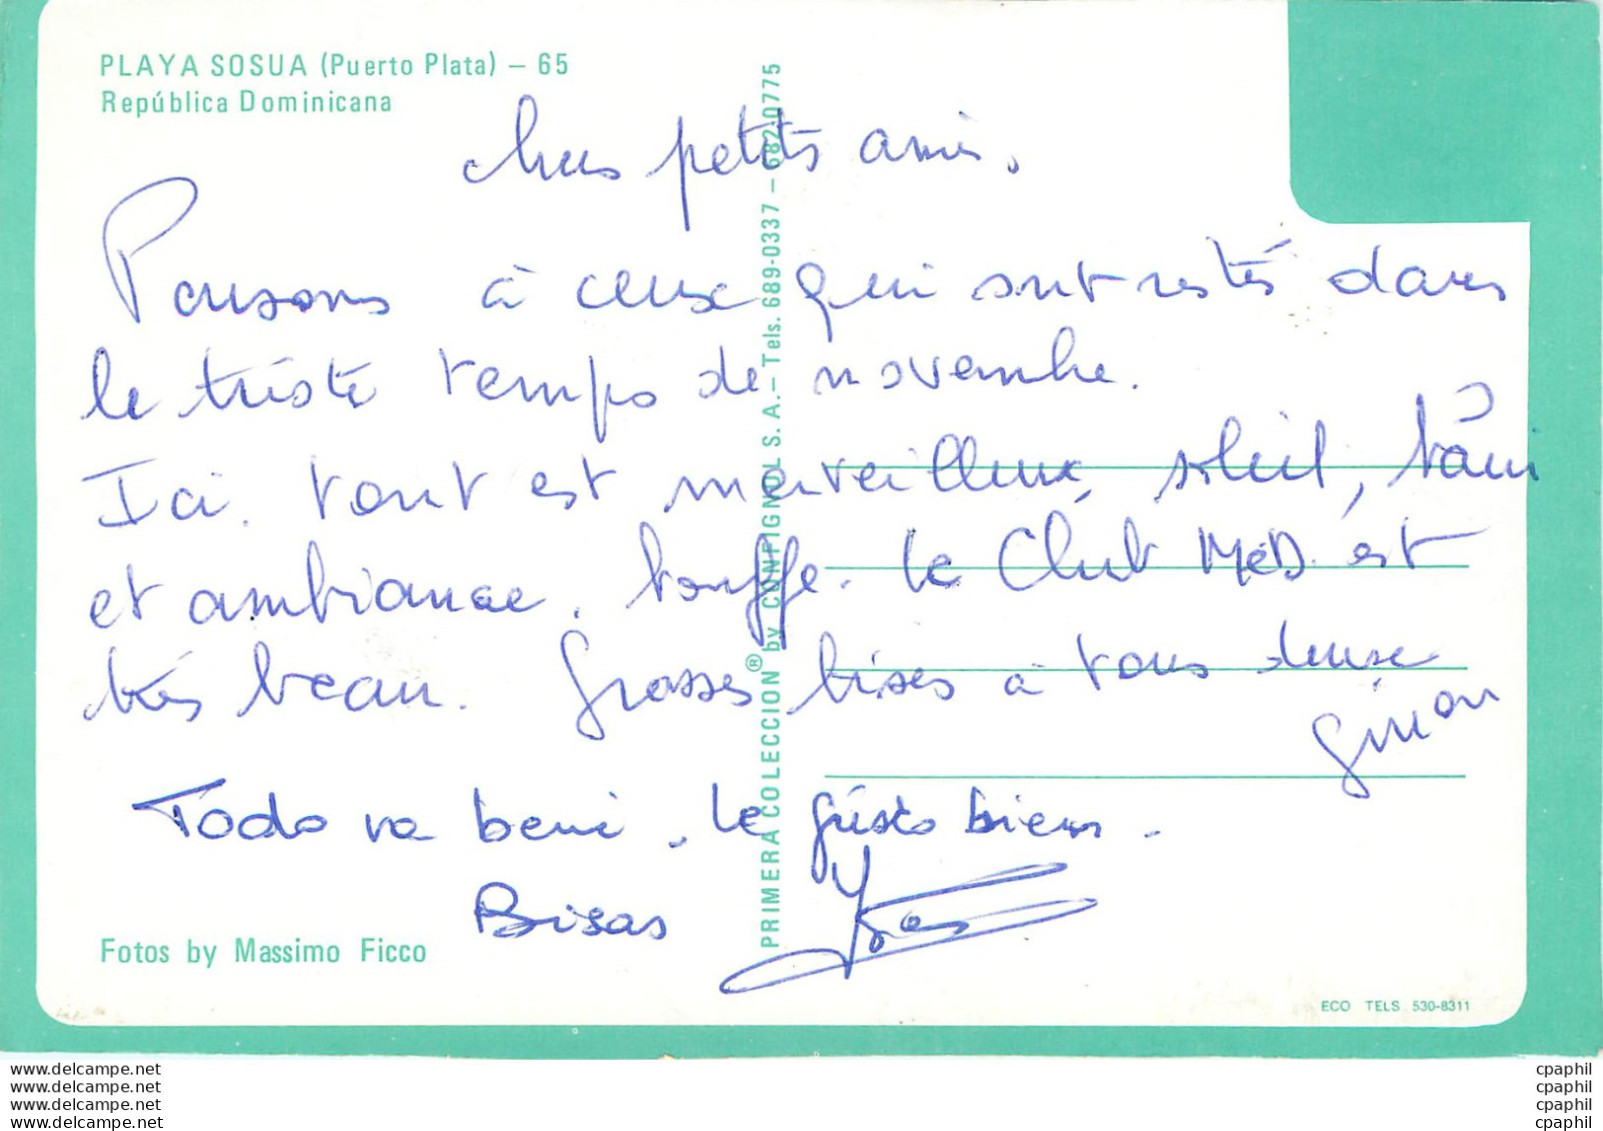 PLAYA SOSUA (Puerto Plata) – 65
República Dominicana
chers petits amis.
Pensons à ceux qui sont restés dans
le triste temps de novembre.
Ici, tout est merveilleux, soleil, bain
et ambiance. bouffe. Le Club MéD. est
très beau. Grosses bises à tous deux
Todo va beni. le gusto bien.
Bisas
PRIMERA COLECCION® by CONPIGNOL S. A. – Tels. 689-0337 – 682-0775
Fotos by Massimo Ficco
ECO TELS. 530-8311
www.delcampe.net
www.delcampe.net
www.delcampe.net
www.delcampe.net
cpaphil
cpaphil
cpaphil
cpaphil